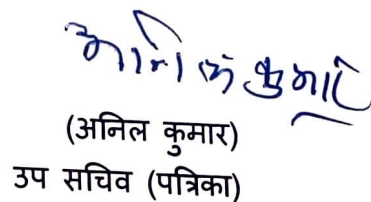 अनिल कुमार
(अनिल कुमार)
उप सचिव (पत्रिका)